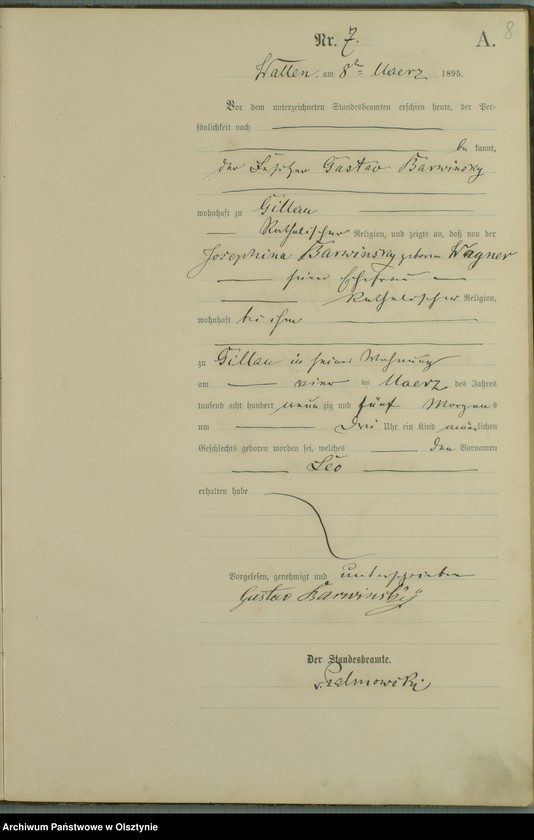 8
Nr. 7. A.
Wallen am 8ten Maerz 1895.
Vor dem unterzeichneten Standesbeamten erschien heute, der Per-
sönlichkeit nach
be kannt,
der Besitzer Gustav Barwinsky
wohnhaft zu Gillau
Katholischer Religion, und zeigte an, daß von der
Josephina Barwinsky geboren Wagner
seiner Ehefrau
Katholischer Religion,
wohnhaft bei ihm
zu Gillau in seiner Wohnung
am vier ten Maerz des Jahres
tausend acht hundert neun zig und fünf Morgens
um Drei Uhr ein Kind männlichen
Geschlechts geboren worden sei, welches den Vornamen
Leo
erhalten habe
Vorgelesen, genehmigt und unterschrieben
Gustav Barwinsky
Der Standesbeamte.
Archiwum Państwowe w Olsztynie